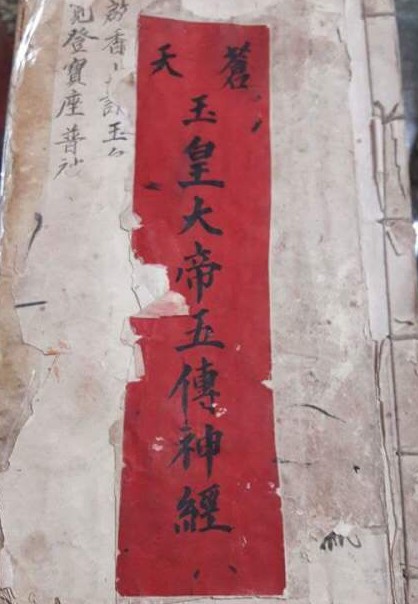 蒼天
玉皇大帝五傳神經
啟香
玉
登寶座普